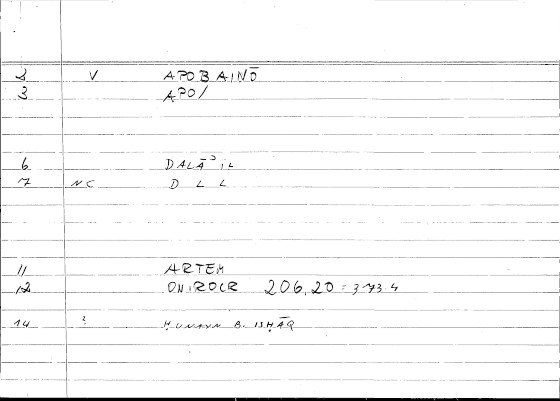 2 V APOBAINŌ
3 APO/
6 DALĀʾIL
7 NC D L L
11 ARTEM
12 ONIROCR 206,20 = 373.4
14 ? ḤUNAYN B. ISḤĀQ